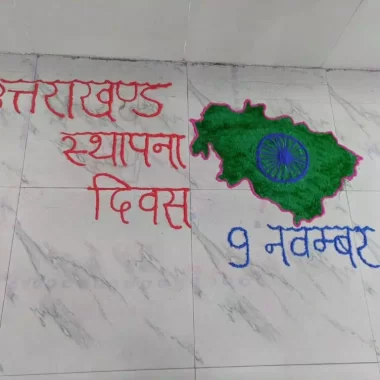 उत्तराखण्ड
स्थापना
दिवस
९ नवम्बर